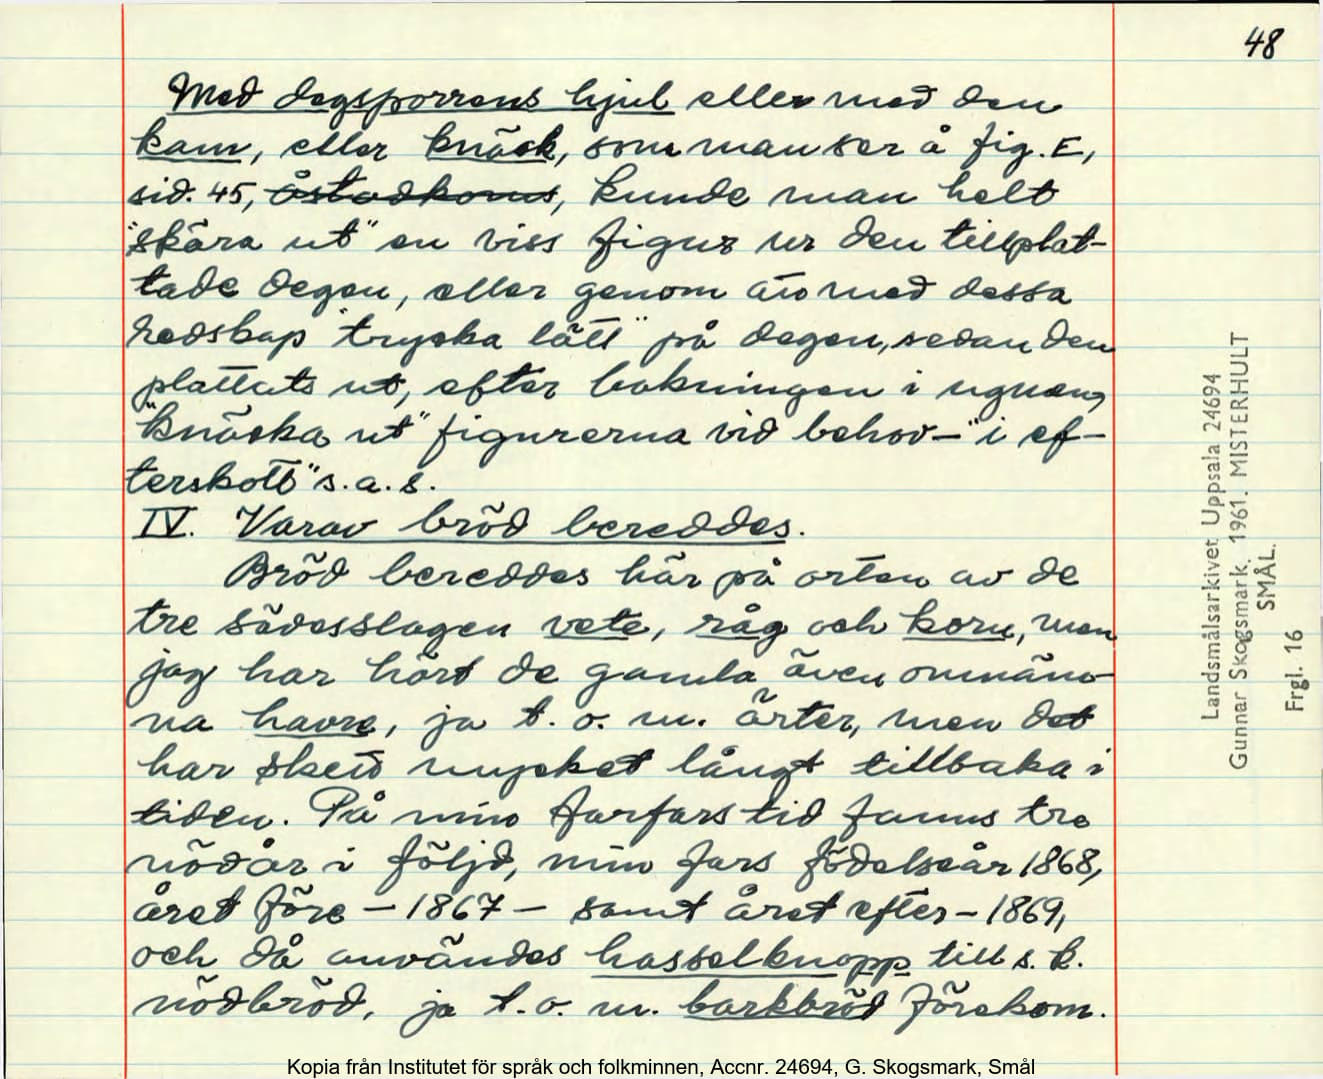 48
Med degsporrens hjul eller med den
kam, eller knäck, som man ser å fig. E,
sid. 45, åstadkoms, kunde man helt
"skära ut" en viss figur ur den tillplat-
tade degen, eller genom att med dessa
redskap "trycka lätt" på degen, sedan den
plattats ut, efter bakningen i ugnen,
"knäcka ut" figurerna vid behov – "i ef-
terskott" s.a.s.
IV. Varav bröd bereddes.
Bröd bereddes här på orten av de
tre sädesslagen vete, råg och korn, men
jag har hört de gamla även omnäm-
na havre, ja t.o.m. ärter, men det
har skett mycket långt tillbaka i
tiden. På min farfars tid fanns tre
nödår i följd, min fars födelseår 1868,
året före – 1867 – samt året efter – 1869,
och då användes hasselknopp till s.k.
nödbröd, ja t.o.m. barkbröd förekom.
Landsmålsarkivet Uppsala 24694
Gunnar Skogsmark. 1961. MISTERHULT
SMÅL.
Frgl. 16
Kopia från Institutet för språk och folkminnen, Accnr. 24694, G. Skogsmark, Smål